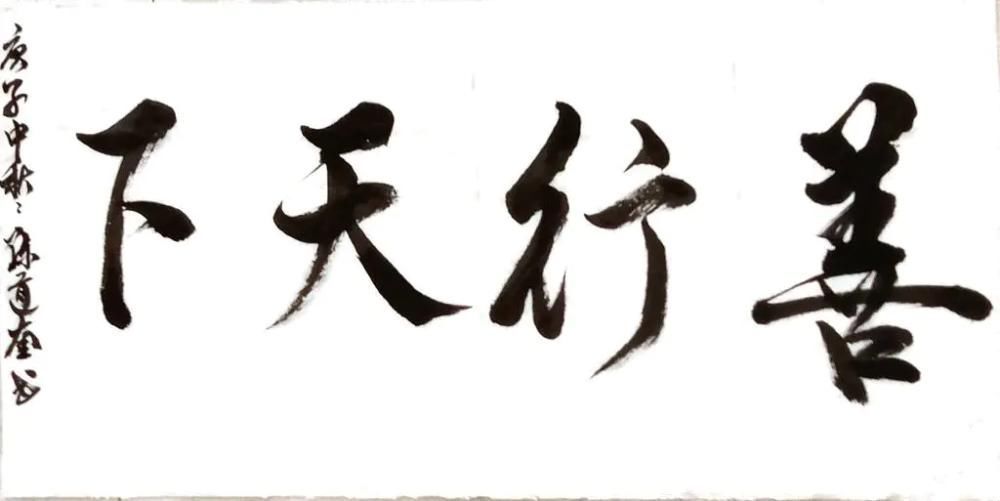 善行天下
庚子中秋孙道南书